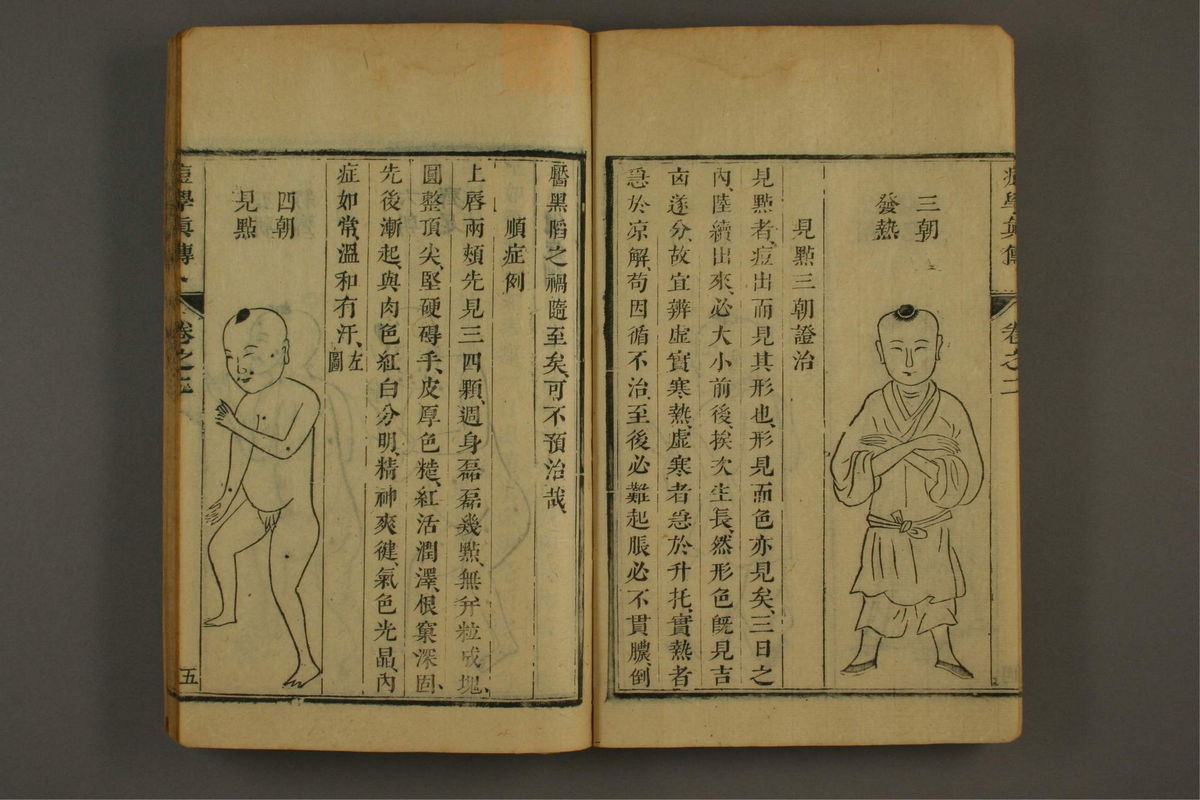 三朝
發熱
見點三朝證治
見點者、痘出而見其形也、形見而色亦見矣、三日之
內、陸續出來、必大小前後、挨次生長、然形色旣見吉
凶遂分、故宜辨虛實寒熱、虛寒者急於升托、實熱者
急於凉解、苟因循不治、至後必難起脹必不貫膿、倒
靨黑陷之禍隨至矣、可不預治哉、
順症例
上唇兩頰先見三四顆、週身磊磊幾點、無弁粒成塊、
圓整頂尖、堅硬碍手、皮厚色糙、紅活潤澤、根窠深固、
先後漸起、與肉色紅白分明、精神爽健、氣色光晶、內
症如常、溫和有汗、左圖
四朝
見點
痘學眞傳
卷之二
五